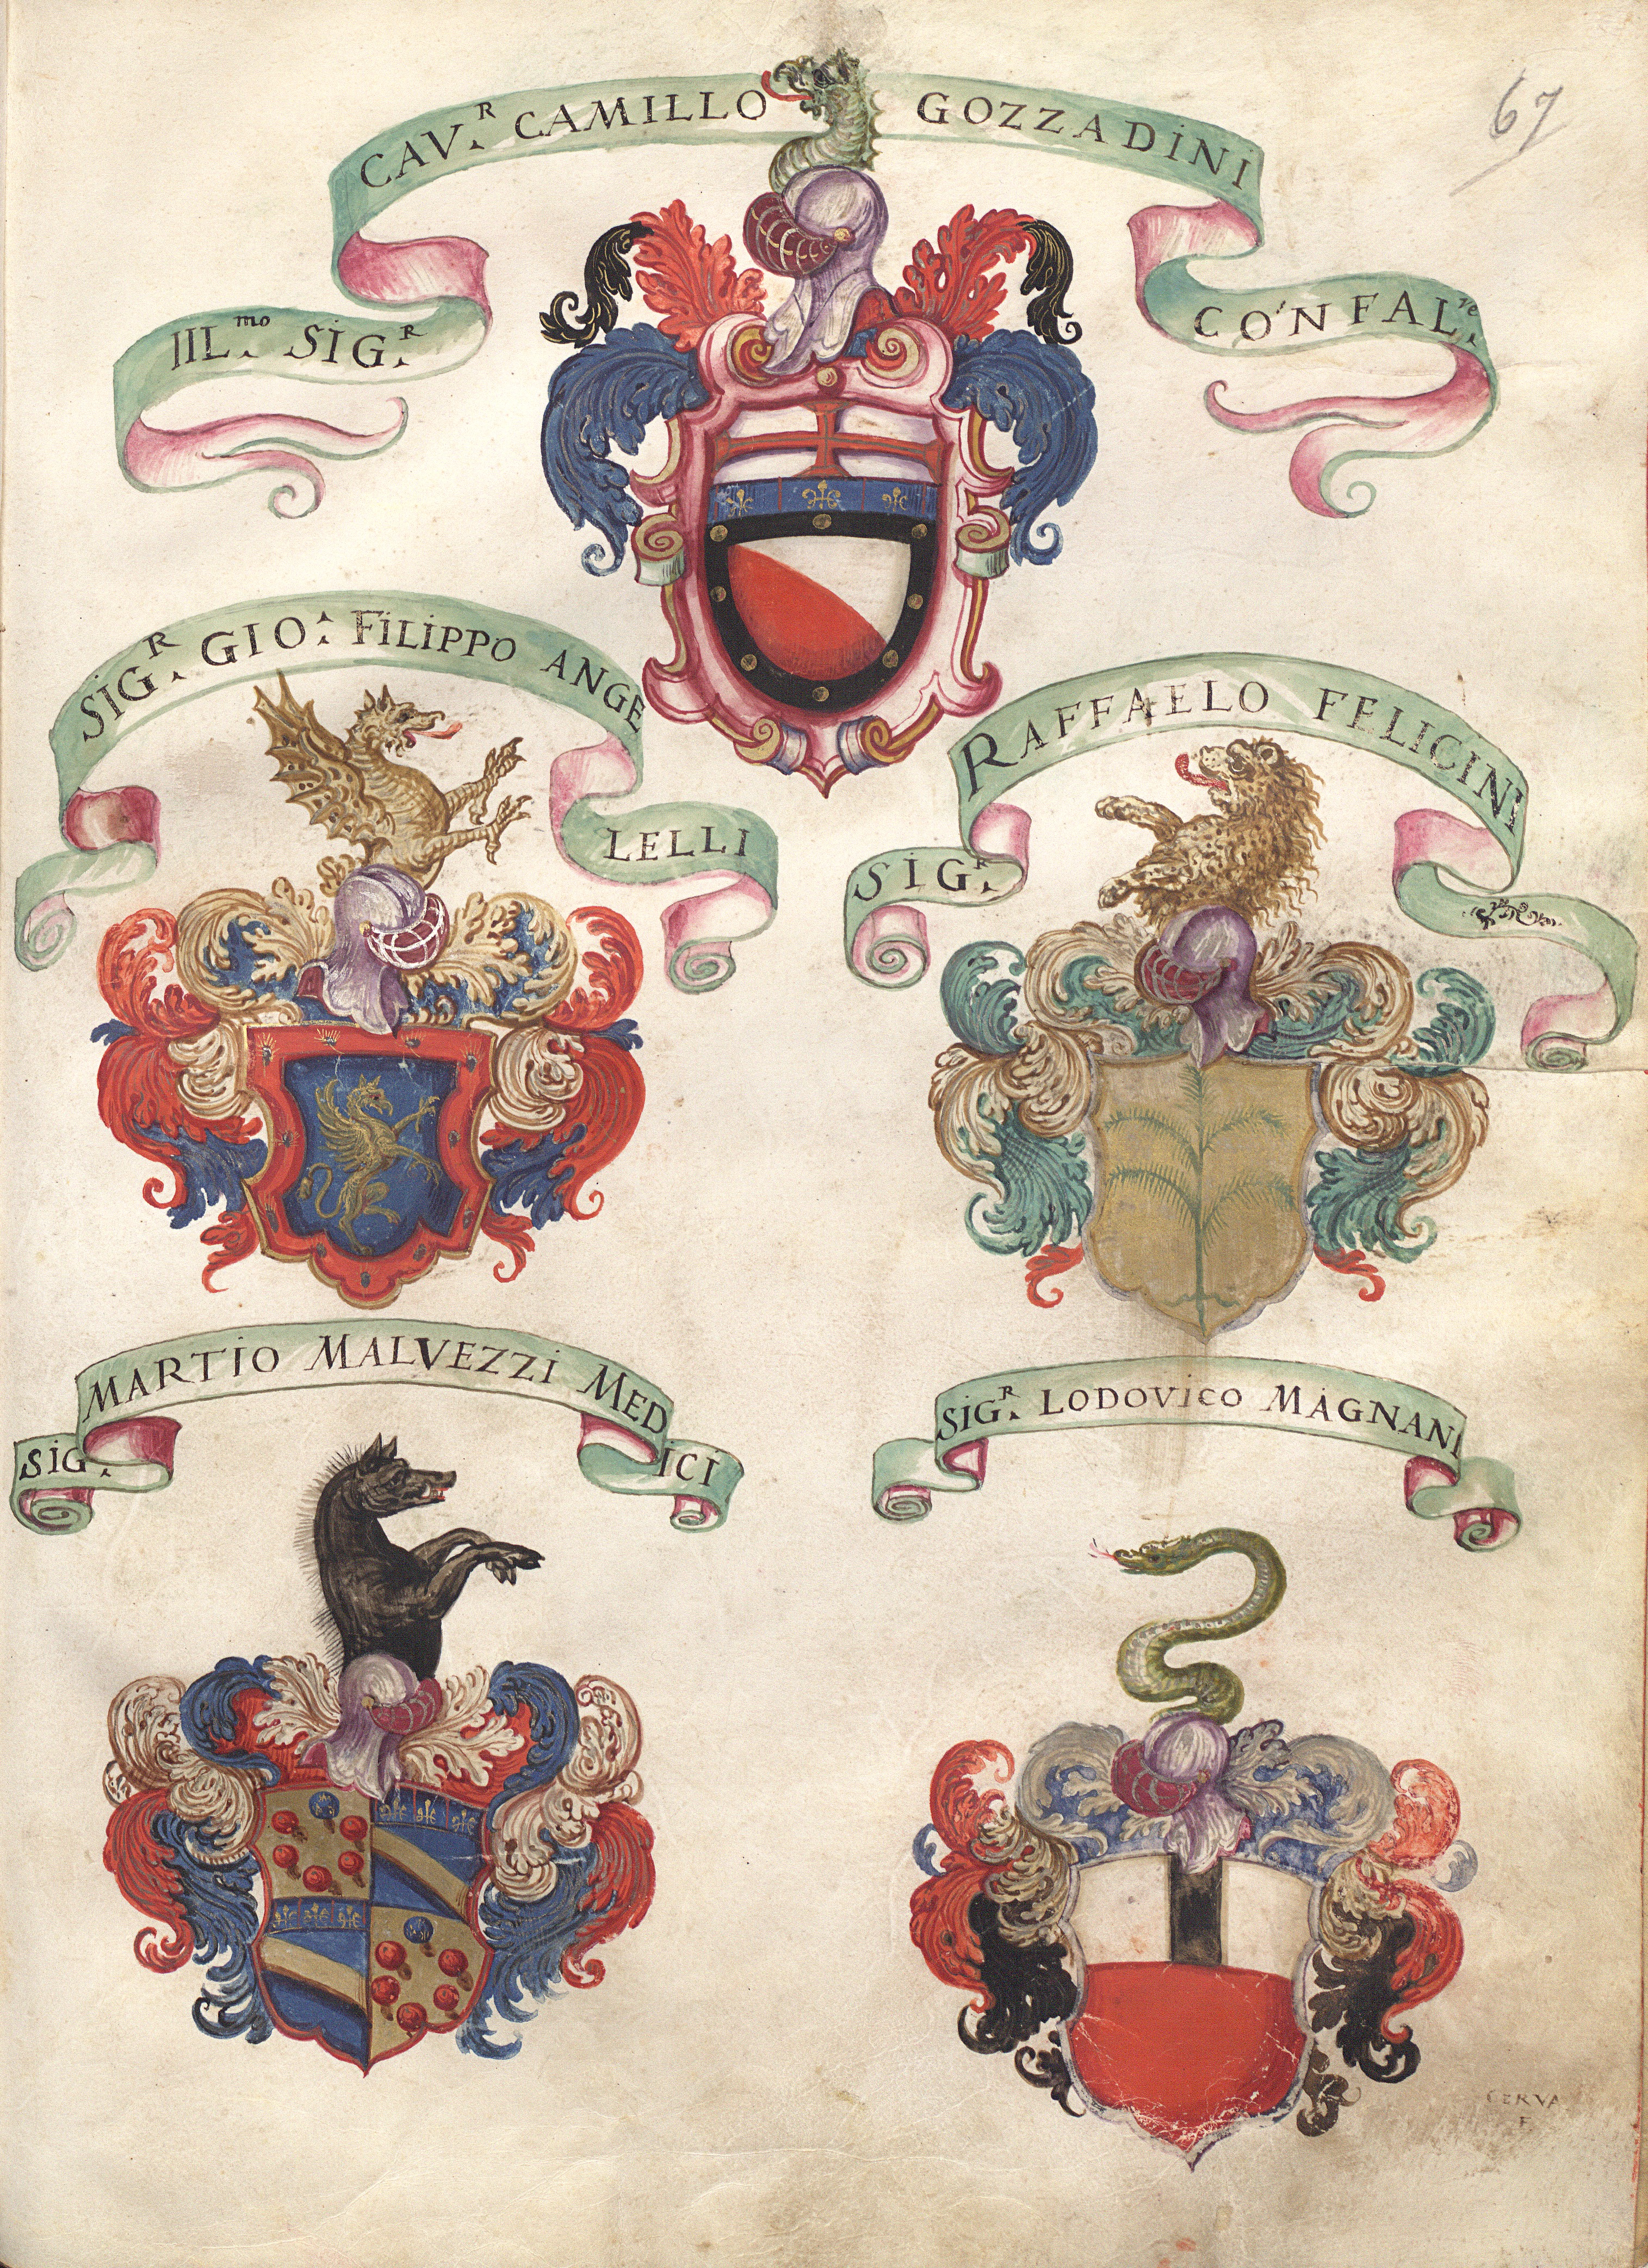 67
ILL.mo SIG.R CAV.R CAMILLO GOZZADINI CONFAL.re
SIG.R GIO: FILIPPO ANGE
LELLI
SIG.R RAFFAELO FELICINI
SIG. MARTIO MALVEZZI MEDICI
SIG.R LODOVICO MAGNANI
CERVA
F